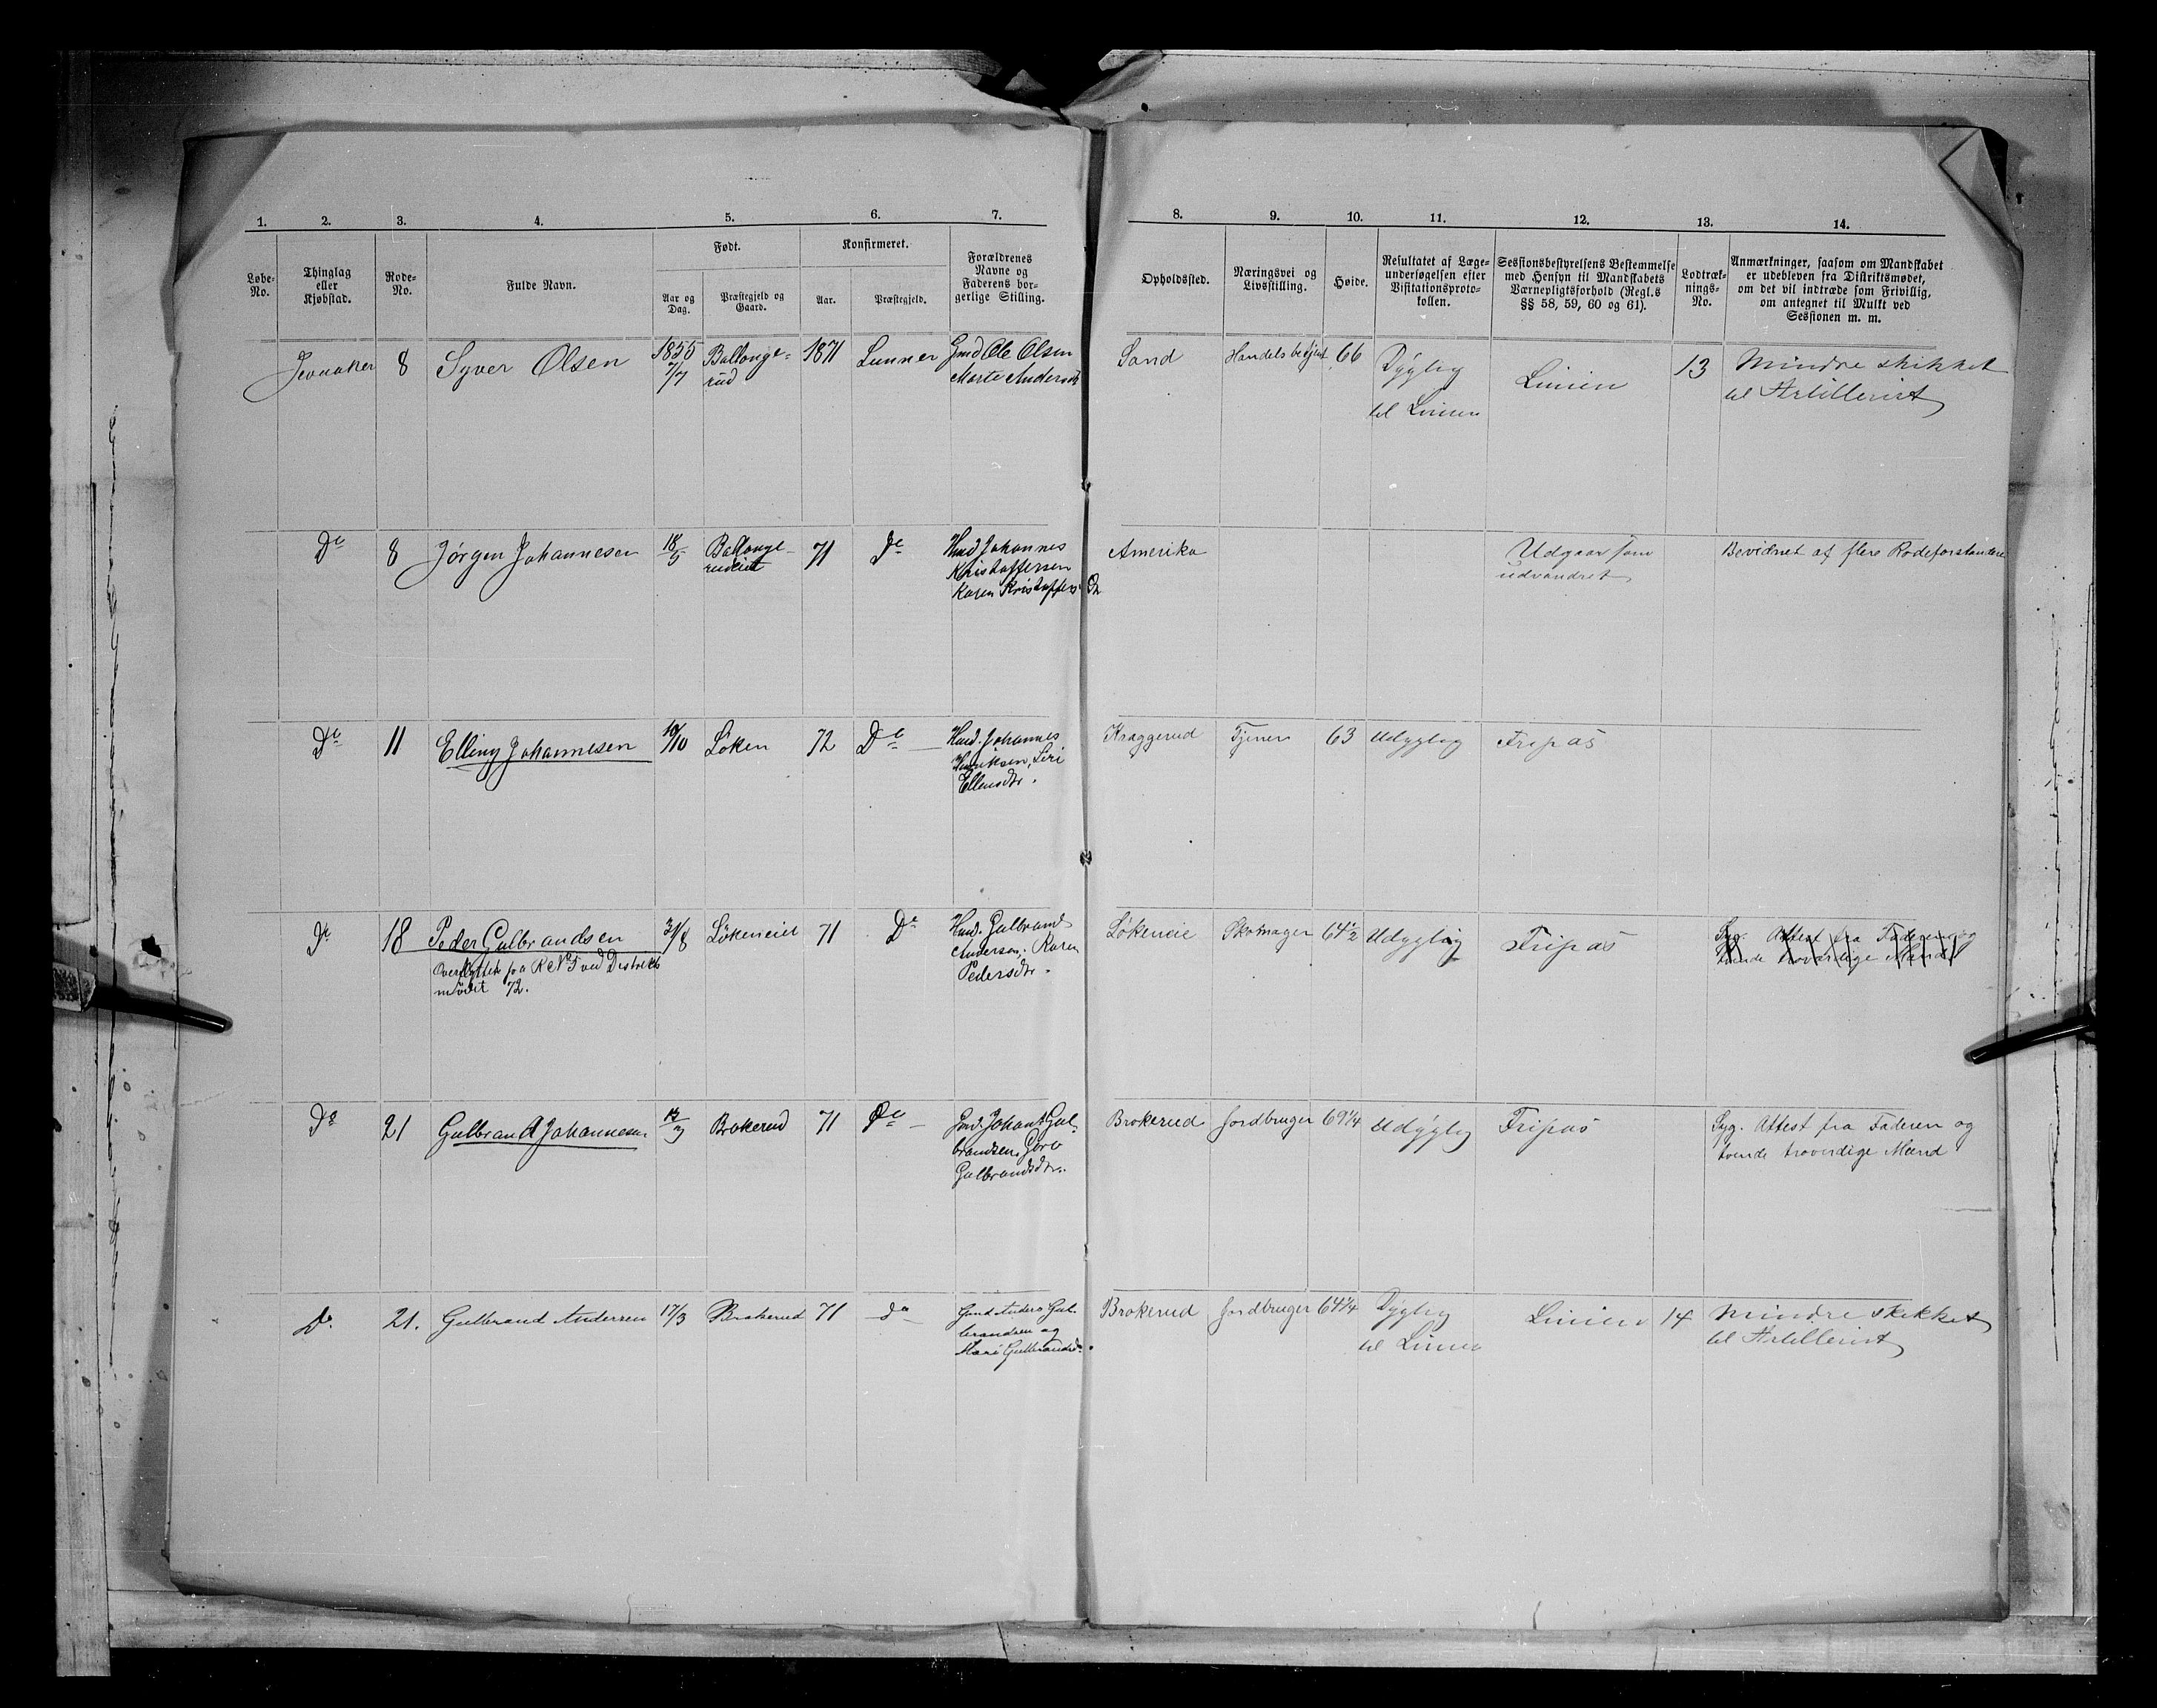 1. 2. 3. 4. 5. 6. 7.
Løbe-
No.
Thinglag
eller
Kjøbstad.
Rode-
No.
Fulde Navn.
Født.
Aar og
Dag.
Præstegjeld og
Gaard.
Konfirmeret.
Aar.
Præstegjeld.
Forældrenes
Navne og
Faderens bor-
gerlige Stilling.
8. 9. 10. 11. 12. 13. 14.
Opholdssted.
Næringsvei og
Livsstilling.
Høide.
Resultatet af Læge-
undersøgelsen efter
Visitationsproto-
kollen.
Sessionsbestyrelsens Bestemmelse
med Hensyn til Mandskabets
Værnepligtsforhold (Regl.s
§§ 58, 59, 60 og 61).
Lodtræk-
nings-
No.
Anmærkninger, saasom om Mandskabet
er udebleven fra Distriktsmødet,
om det vil indtræde som Frivillig,
om antegnet til Mulkt ved
Sessionen m. m.
Jevnaker 8 Syver Olsen
1855
7/7
Ballange-
rud
1871 Lunner
Gmd Ole Olsen
Marte Andersdt
Sand Handelsbetjent 66
Dygtig
til Linien
Linien
13
Mindre skikket
til Artillerist
Do 8 Jørgen Johannesen
18/5
Ballange-
rudeiet
71 Do
Hmd Johannes
Kristoffersen
Karen Kristoffers
Amerika
Udgaar som
udvandret
Bevidnet af flere Rodeforstandere
Do 11 Elling Johannesen
10/10
Løken 72 Do
Hmd. Johannes
Henriksen, Siri
Ellensdtr.
Kraggerud Tjener 63 Udygtig Fripas
Do 18 Peder Gulbrandsen
Overflyttet fra R No 5 ved Distrikts
mødet 72.
31/8
Løkeneiet 71 Do
Hmd. Gulbrand
Andersen, Karen
Pedersdtr.
Løkeneie Skomager 64 1/2 Udygtig Fripas
Syg. Attest fra Faderen og
tvende troværdige Mænd
Do 21 Gulbrand Johannesen
Brokerud 71 Do
Gmd. Johans Gul-
brandsen,
Gulbrandsdtr.
Brokerud Jordbruger 69 1/4 Udygtig Fripas
Syg. Attest fra Faderen og
tvende troverdige Mænd
Do. 21. Gulbrand Andersen 17/3 Brokerud 71 do
Gmd Anders Gul-
brandsen og
Mari Gulbrandsd.
Brokerud Jordbruger 64 1/4
Dygtig
til Linien
Linien 14
Mindre skikket
til Artillerist